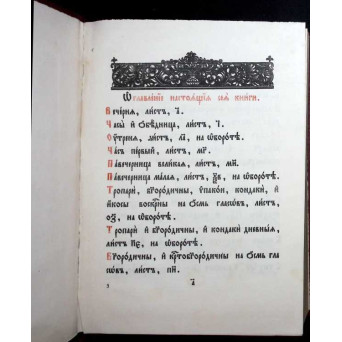 Ѡглавле́нїе настоѧ́щїѧ сеѧ̀ кни́ги.
Вече́рнѧ, ли́стъ, а҃.
Часы̀ и҆ ѡ҆бѣ́дница, ли́стъ, і҃.
Оу҆́тренѧ, ли́стъ, на ѡ҆боро́тѣ.
Ча́съ пе́рвый, ли́стъ, мг҃.
Павече́рница вели́каѧ, ли́стъ, мн҃.
Павече́рница ма́лаѧ, ли́стъ, на ѡ҆боро́тѣ.
Тропарѝ, бг҃оро́дичны, ѵ҆пакоѝ, кондакѝ, и҆
і҆́косы воскр҃сны на ѻ҆́смь гласѡ́въ, ли́стъ,
ѻ҃з, на ѡ҆боро́тѣ.
Тропарѝ и҆ бг҃оро́дичны, и҆ кондакѝ дневны́ѧ,
ли́стъ п҃є, на ѡ҆боро́тѣ.
Бг҃оро́дичны, и҆ крⷭ҇тобг҃оро́дичны на ѻ҆́смь гла
сѡ́въ, ли́стъ, пи҃.
а҃